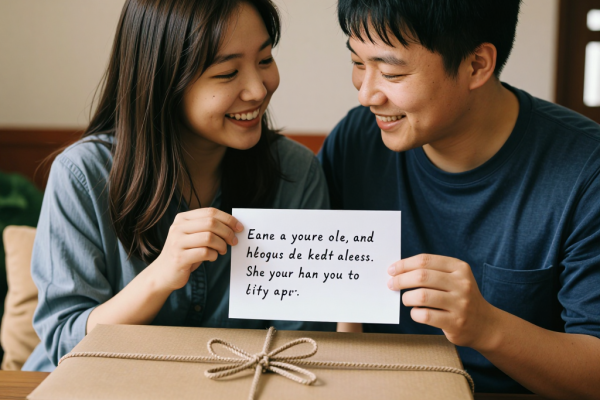 Eane a youre ole, and
hēogus de kedt aleess.
She your han you to